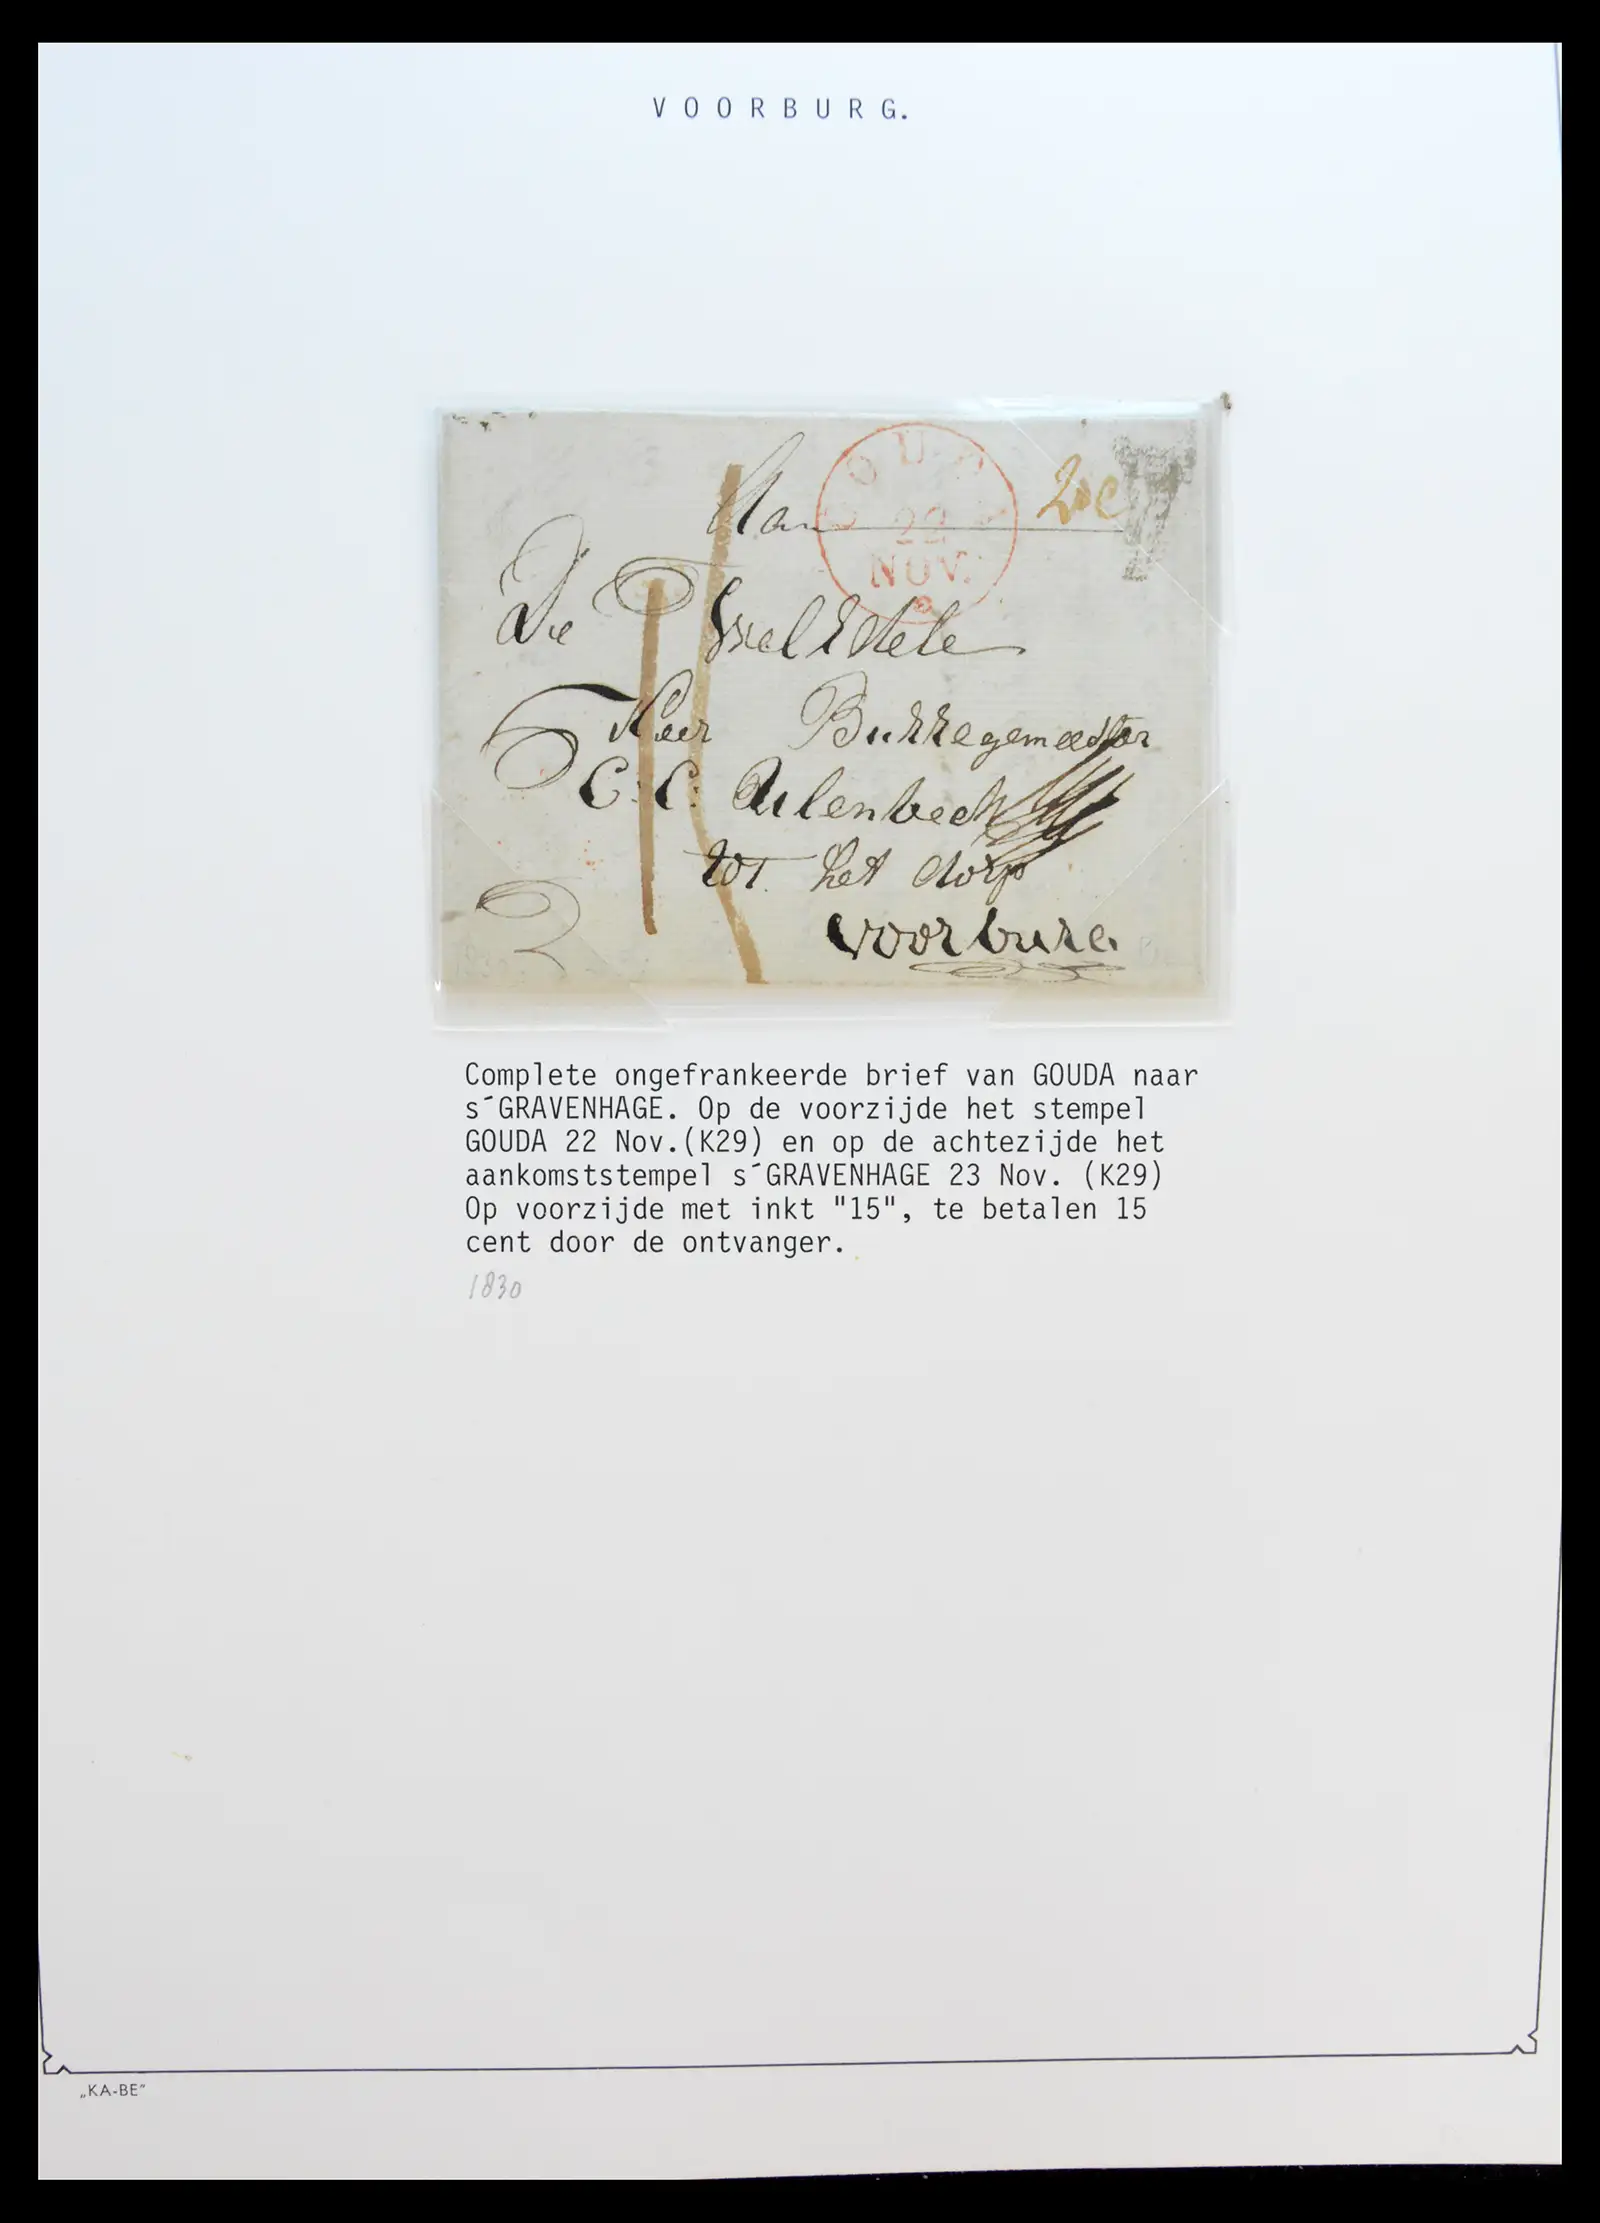 VOORBURG.
GOUDA
22
NOV.
Aan
De Wel Edele
Heer Burregemeester
C: C: Aulenbech
tot het dorp
voorburg.
Complete ongefrankeerde brief van GOUDA naar
s´GRAVENHAGE. Op de voorzijde het stempel
GOUDA 22 Nov.(K29) en op de achtezijde het
aankomststempel s´GRAVENHAGE 23 Nov. (K29)
Op voorzijde met inkt "15", te betalen 15
cent door de ontvanger.
1830
„KA-BE”